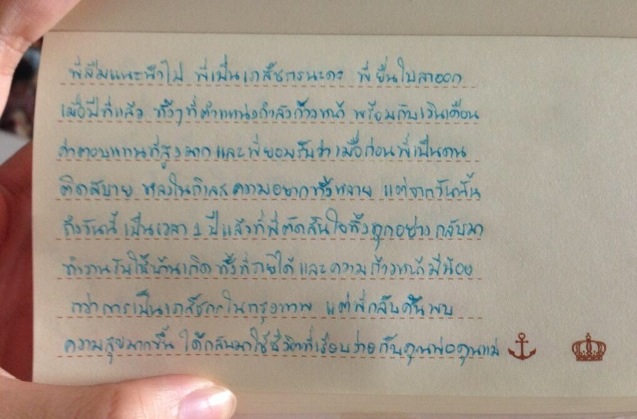 พี่ลืมแนะนำไป พี่เป็นเภสัชกรนะคะ พี่ยื่นใบลาออก
เมื่อปีที่แล้ว ทั้งๆที่ตำแหน่งกำลังก้าวหน้า พร้อมกับเงินเดือน
ค่าตอบแทนที่สูงมาก และพี่ยอมรับว่าเมื่อก่อนพี่เป็นคน
ติดสบาย หลงในกิเลสความอยากทั้งหลาย แต่จากวันนั้น
ถึงวันนี้ เป็นเวลา 1 ปีแล้วที่พี่ตัดสินใจทิ้งทุกอย่าง กลับมา
ทำงานรับใช้บ้านเกิด ทั้งที่รายได้ และความก้าวหน้ามีน้อย
กว่าการเป็นเภสัชกรในกรุงเทพ แต่พี่กลับค้นพบ
ความสุขมากขึ้น ได้กลับมาใช้ชีวิตที่เรียบง่ายกับคุณพ่อคุณแม่